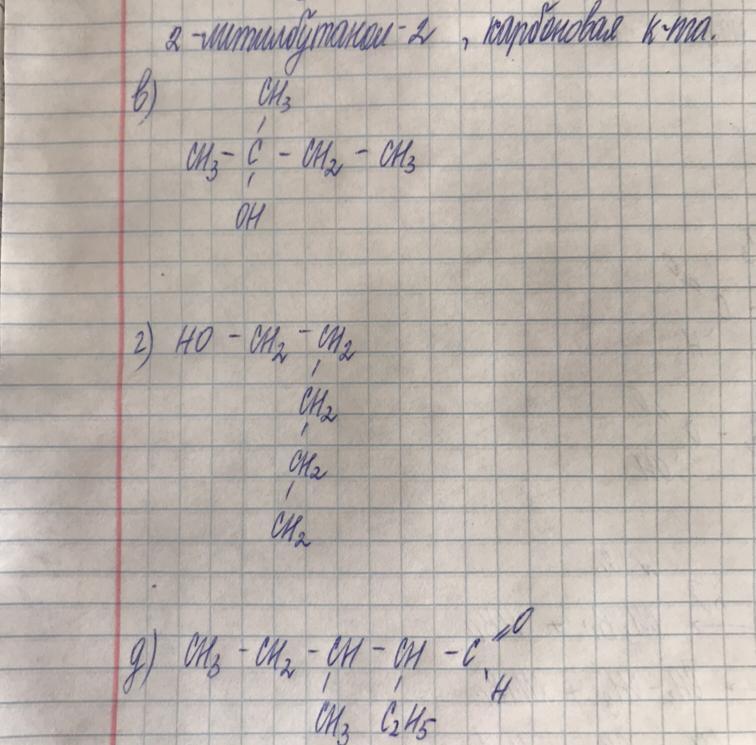 2-метилбутанол-2, карбоновая к-та.
в) CH3
CH3 - C - CH2 - CH3
OH
г) HO - CH2 - CH2
CH2
CH2
CH2
д) CH3 - CH2 - CH - CH - C =O
H
CH3 C2H5